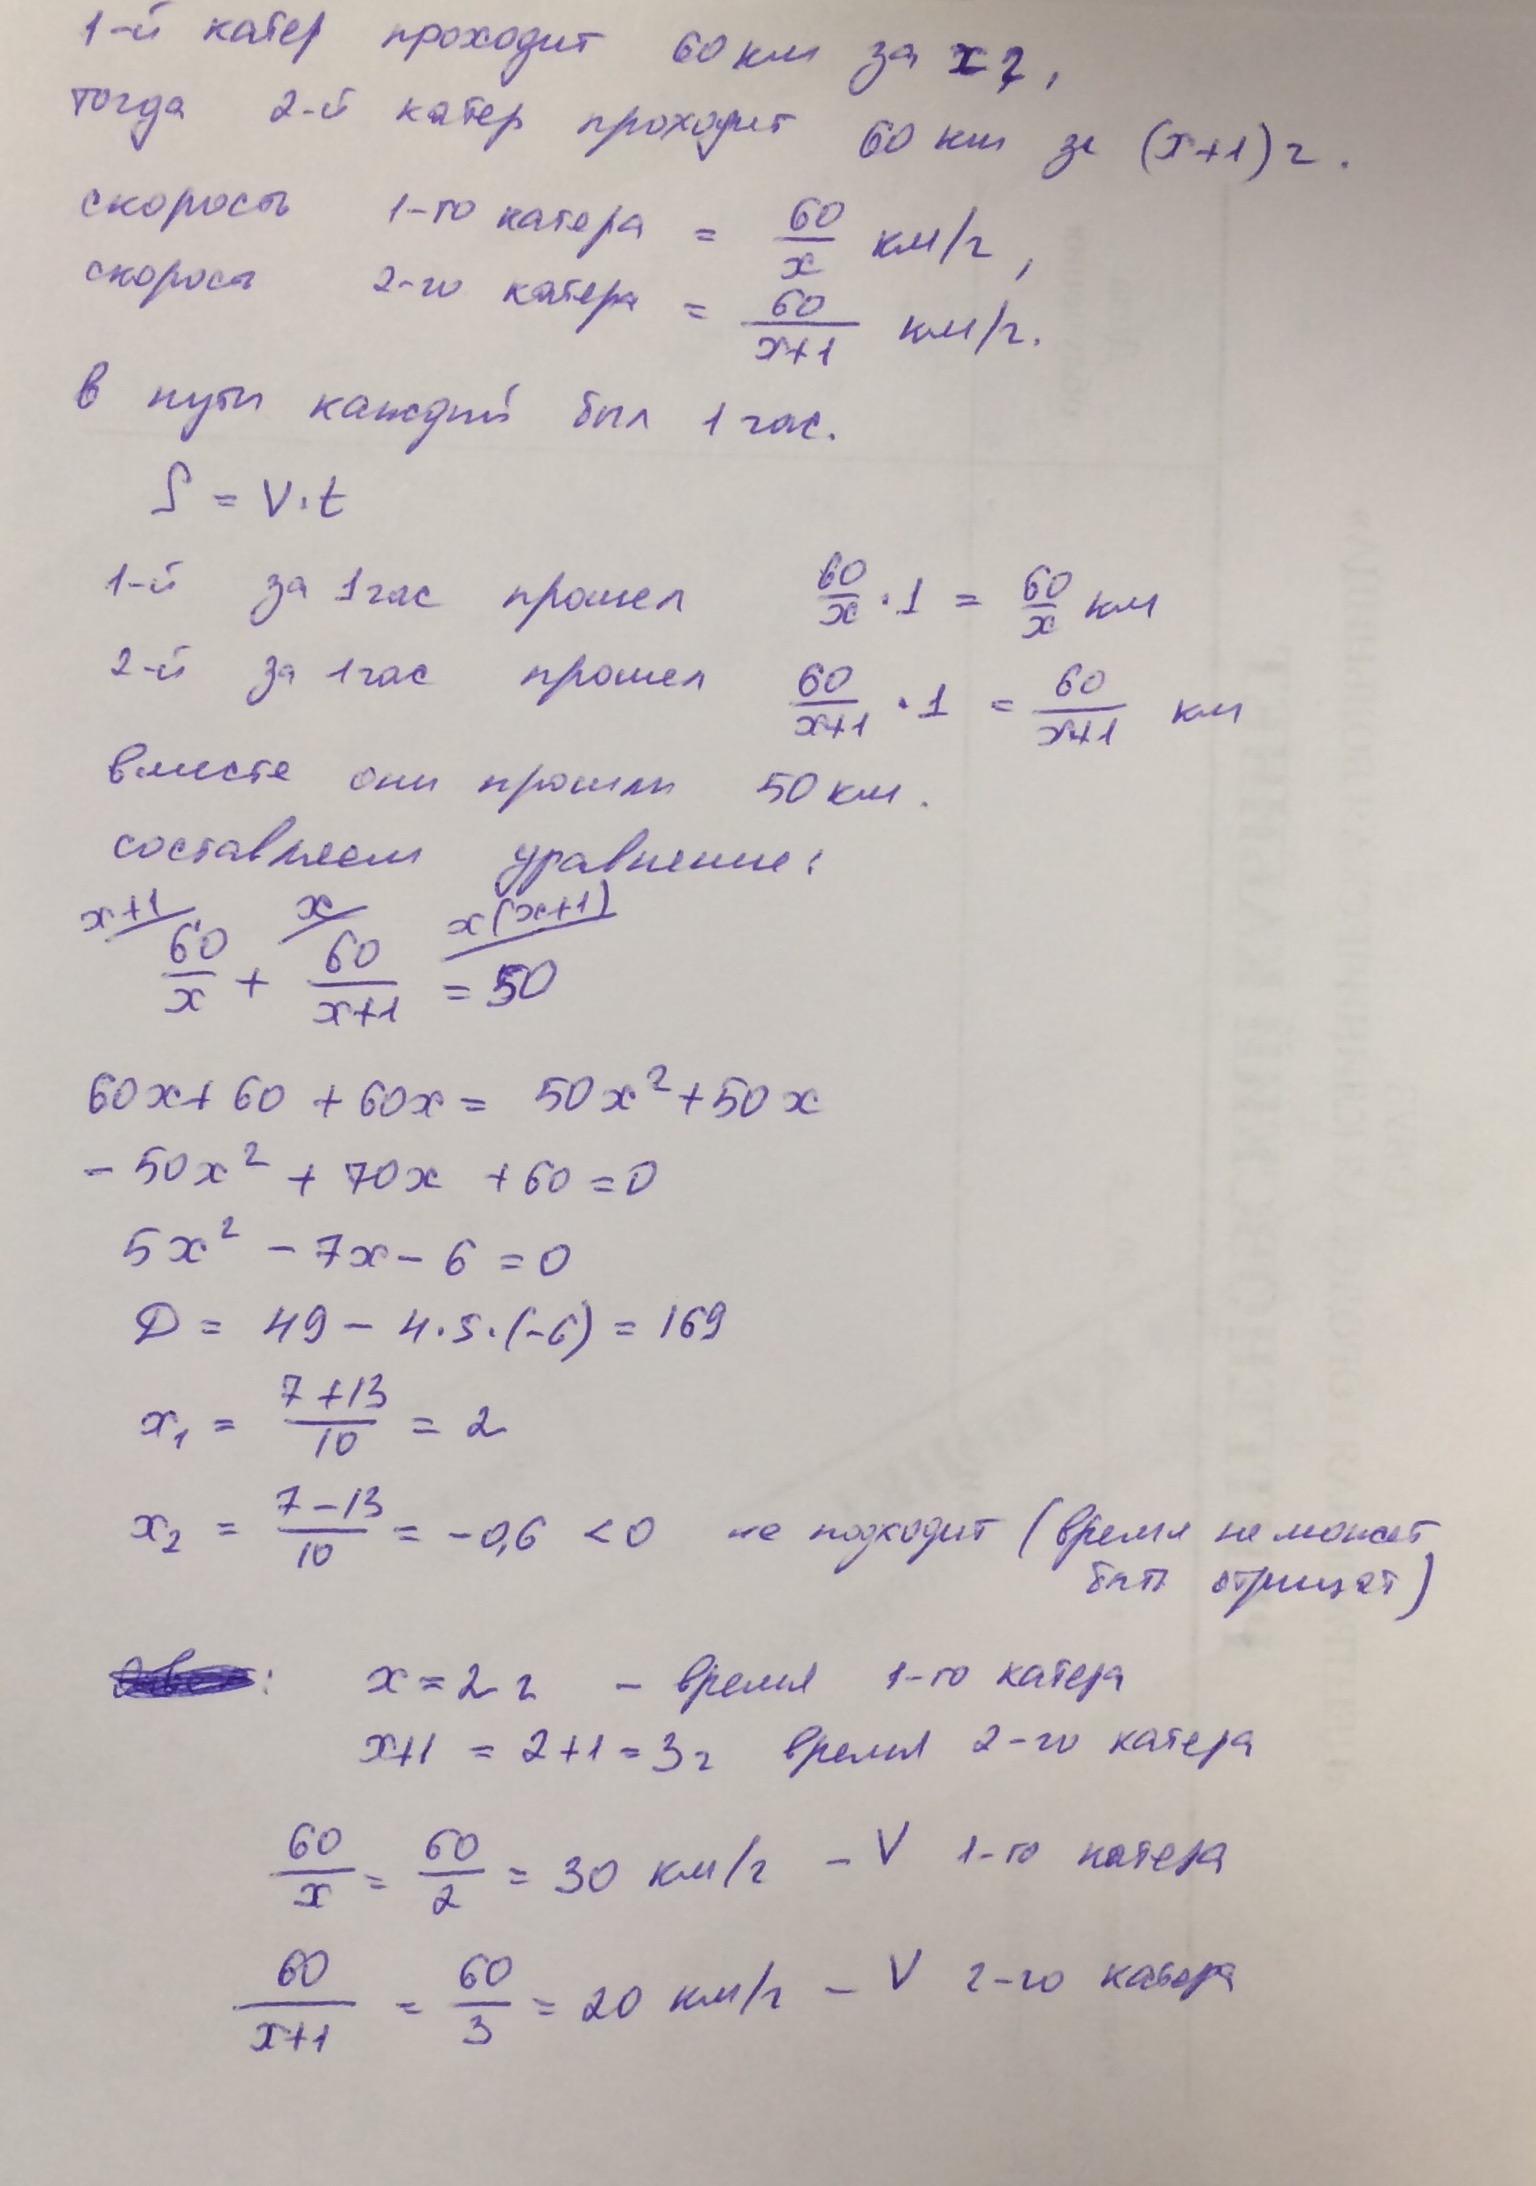 1-й катер проходит 60 км за x ч,
тогда 2-й катер проходит 60 км за (x+1) ч.
скорость 1-го катера = 60/x км/ч,
скорость 2-го катера = 60/(x+1) км/ч.
в пути каждый был 1 час.
S = V·t
1-й за 1 час прошел 60/x · 1 = 60/x км
2-й за 1 час прошел 60/(x+1) · 1 = 60/(x+1) км
вместе они прошли 50 км.
составляем уравнение:
x+1/ x/ x(x+1)/
60/x + 60/(x+1) = 50
60x + 60 + 60x = 50x² + 50x
- 50x² + 70x + 60 = 0
5x² - 7x - 6 = 0
D = 49 - 4·5·(-6) = 169
x₁ = (7+13)/10 = 2
x₂ = (7-13)/10 = -0,6 < 0 не подходит (время не может
быть отрицат)
: x = 2 ч - время 1-го катера
x+1 = 2+1 = 3 ч время 2-го катера
60/x = 60/2 = 30 км/ч - V 1-го катера
60/(x+1) = 60/3 = 20 км/ч - V 2-го катера